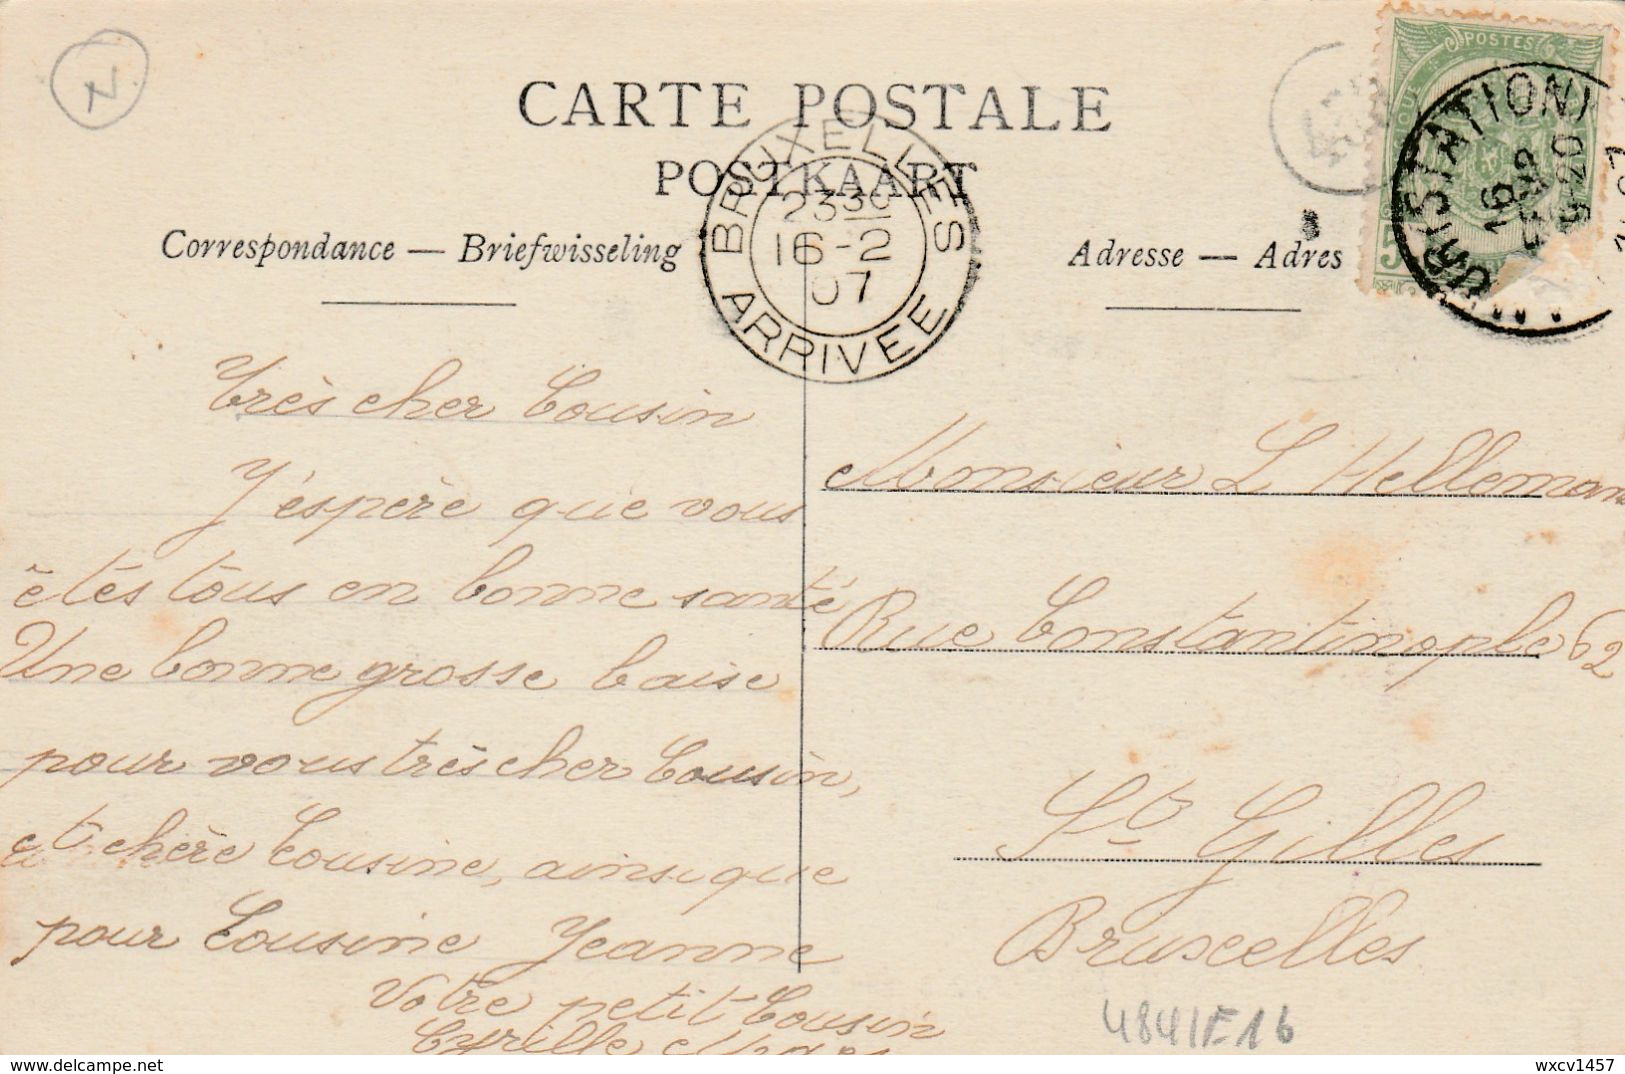 N
CARTE POSTALE
POSTKAART
Correspondance — Briefwisseling
Adresse — Adres
BRUXELLES
23 30
16-2
07
ARRIVEE
POSTES
5
(STATION)
16
FEVR
Très cher Cousin
J'espère que vous
êtês tous en bonne santé
Une bonne grosse baise
pour vous très cher Cousin,
et chère Cousine, ainsi que
pour Cousine Jeanne
Votre petit Cousin
Cyrille
Monsieur L Hellemans
Rue Constantinople 62
St Gilles
Bruxelles
4841E16
delcampe.net
wxcv1457